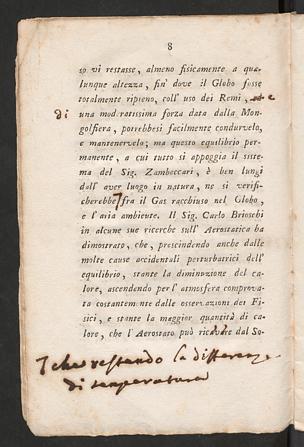 8
so vi restasse, almeno fisicamente a qua-
lunque altezza, fin' dove il Globo fosse
totalmente ripieno, coll' uso dei Remi, e
di una moderatissima forza data dalla Mon-
golfiera, potrebbesi facilmente condurvelo,
e mantenervelo; ma questo equilibrio per-
manente, a cui tutto si appoggia il siste-
ma del Sig. Zambeccari, è ben lungi
dall' aver luogo in natura, ne si verifi-
cherebbe fra il Gas racchiuso nel Globo,
e l'aria ambiente. Il Sig. Carlo Brioschi
in alcune sue ricerche sull' Aerostatica ha
dimostrato, che, prescindendo anche dalle
molte cause accidentali perturbatrici dell'
equilibrio, stante la diminuzione del ca-
lore, ascendendo per l'atmosfera comprova-
ta costantemente dalle osservazioni dei Fi-
sici, e stante la maggior quantità di ca-
lore, che l'Aerostato può ricever dal So-
che restando la differenza
di temperatura